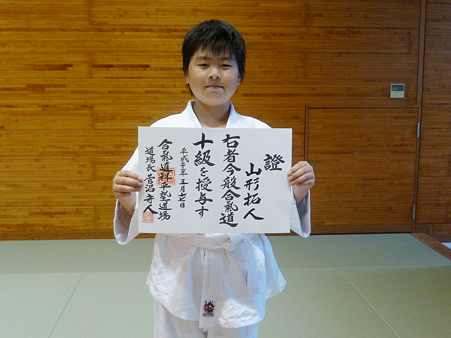 證
山形拓人
右者今般合氣道
十級を授与す
平成二十年五月十七日
合氣道祥平塾道場
道場長菅沼守人